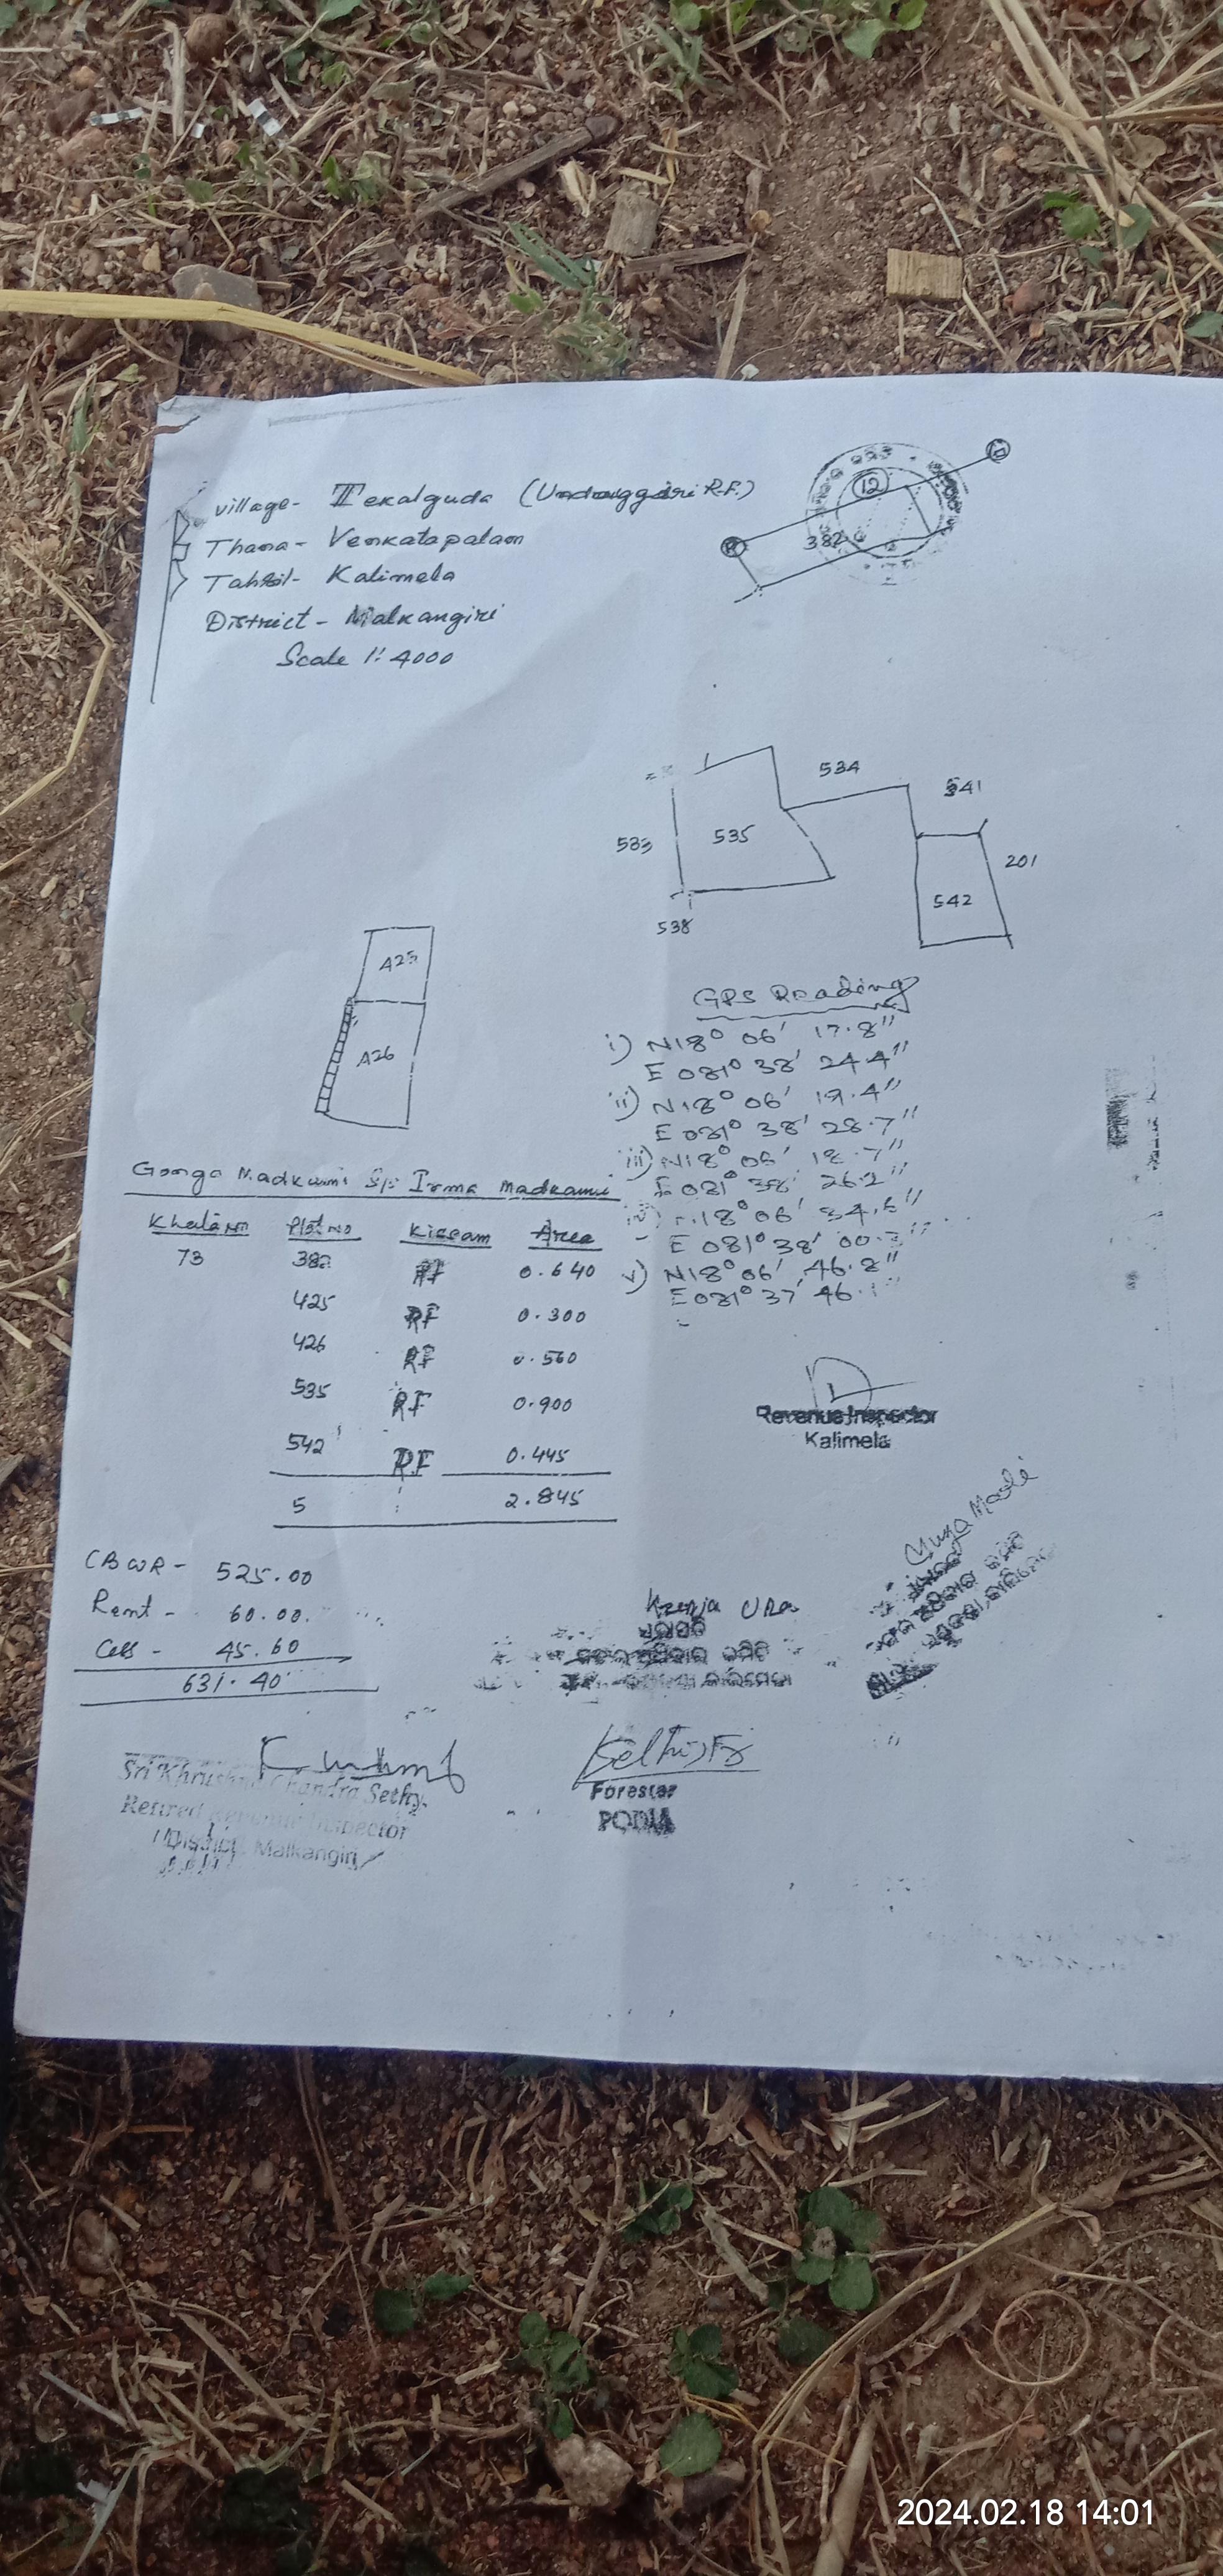 village- Tekalguda (Undauggari R.F.)
Thana- Venkatapalam
Tahsil- Kalimela
District- Malkangiri
Scale 1:4000
12
382
534
541
533
535
201
542
538
A25
A26
GPS Reading
i) N18° 06' 17.8"
E 081° 38' 24.4"
ii) N18° 06' 19.4"
E 081° 38' 28.7"
iii) N18° 06' 18.7"
E 081° 38' 26.2"
N18° 06' 34.6"
E 081° 38' 00.
v) N18° 06' 46.8"
E 081° 37' 46.
Gonga Madkami S/o Irma Madkami
Khata No Plot No Kissam Area
73 382 RF 0.640
425 RF 0.300
426 RF 0.560
535 RF 0.900
542 RF 0.445
5 2.845
Revenue Inspector
Kalimela
CBWR- 525.00
Rent- 60.00
Cess- 45.60
631.40
Muka Madi
Kenja Ura
Sri Khrushna Chandra Sethy
Retired Revenue Inspector
District Malkangiri
Forester
PODIA
2024.02.18 14:01